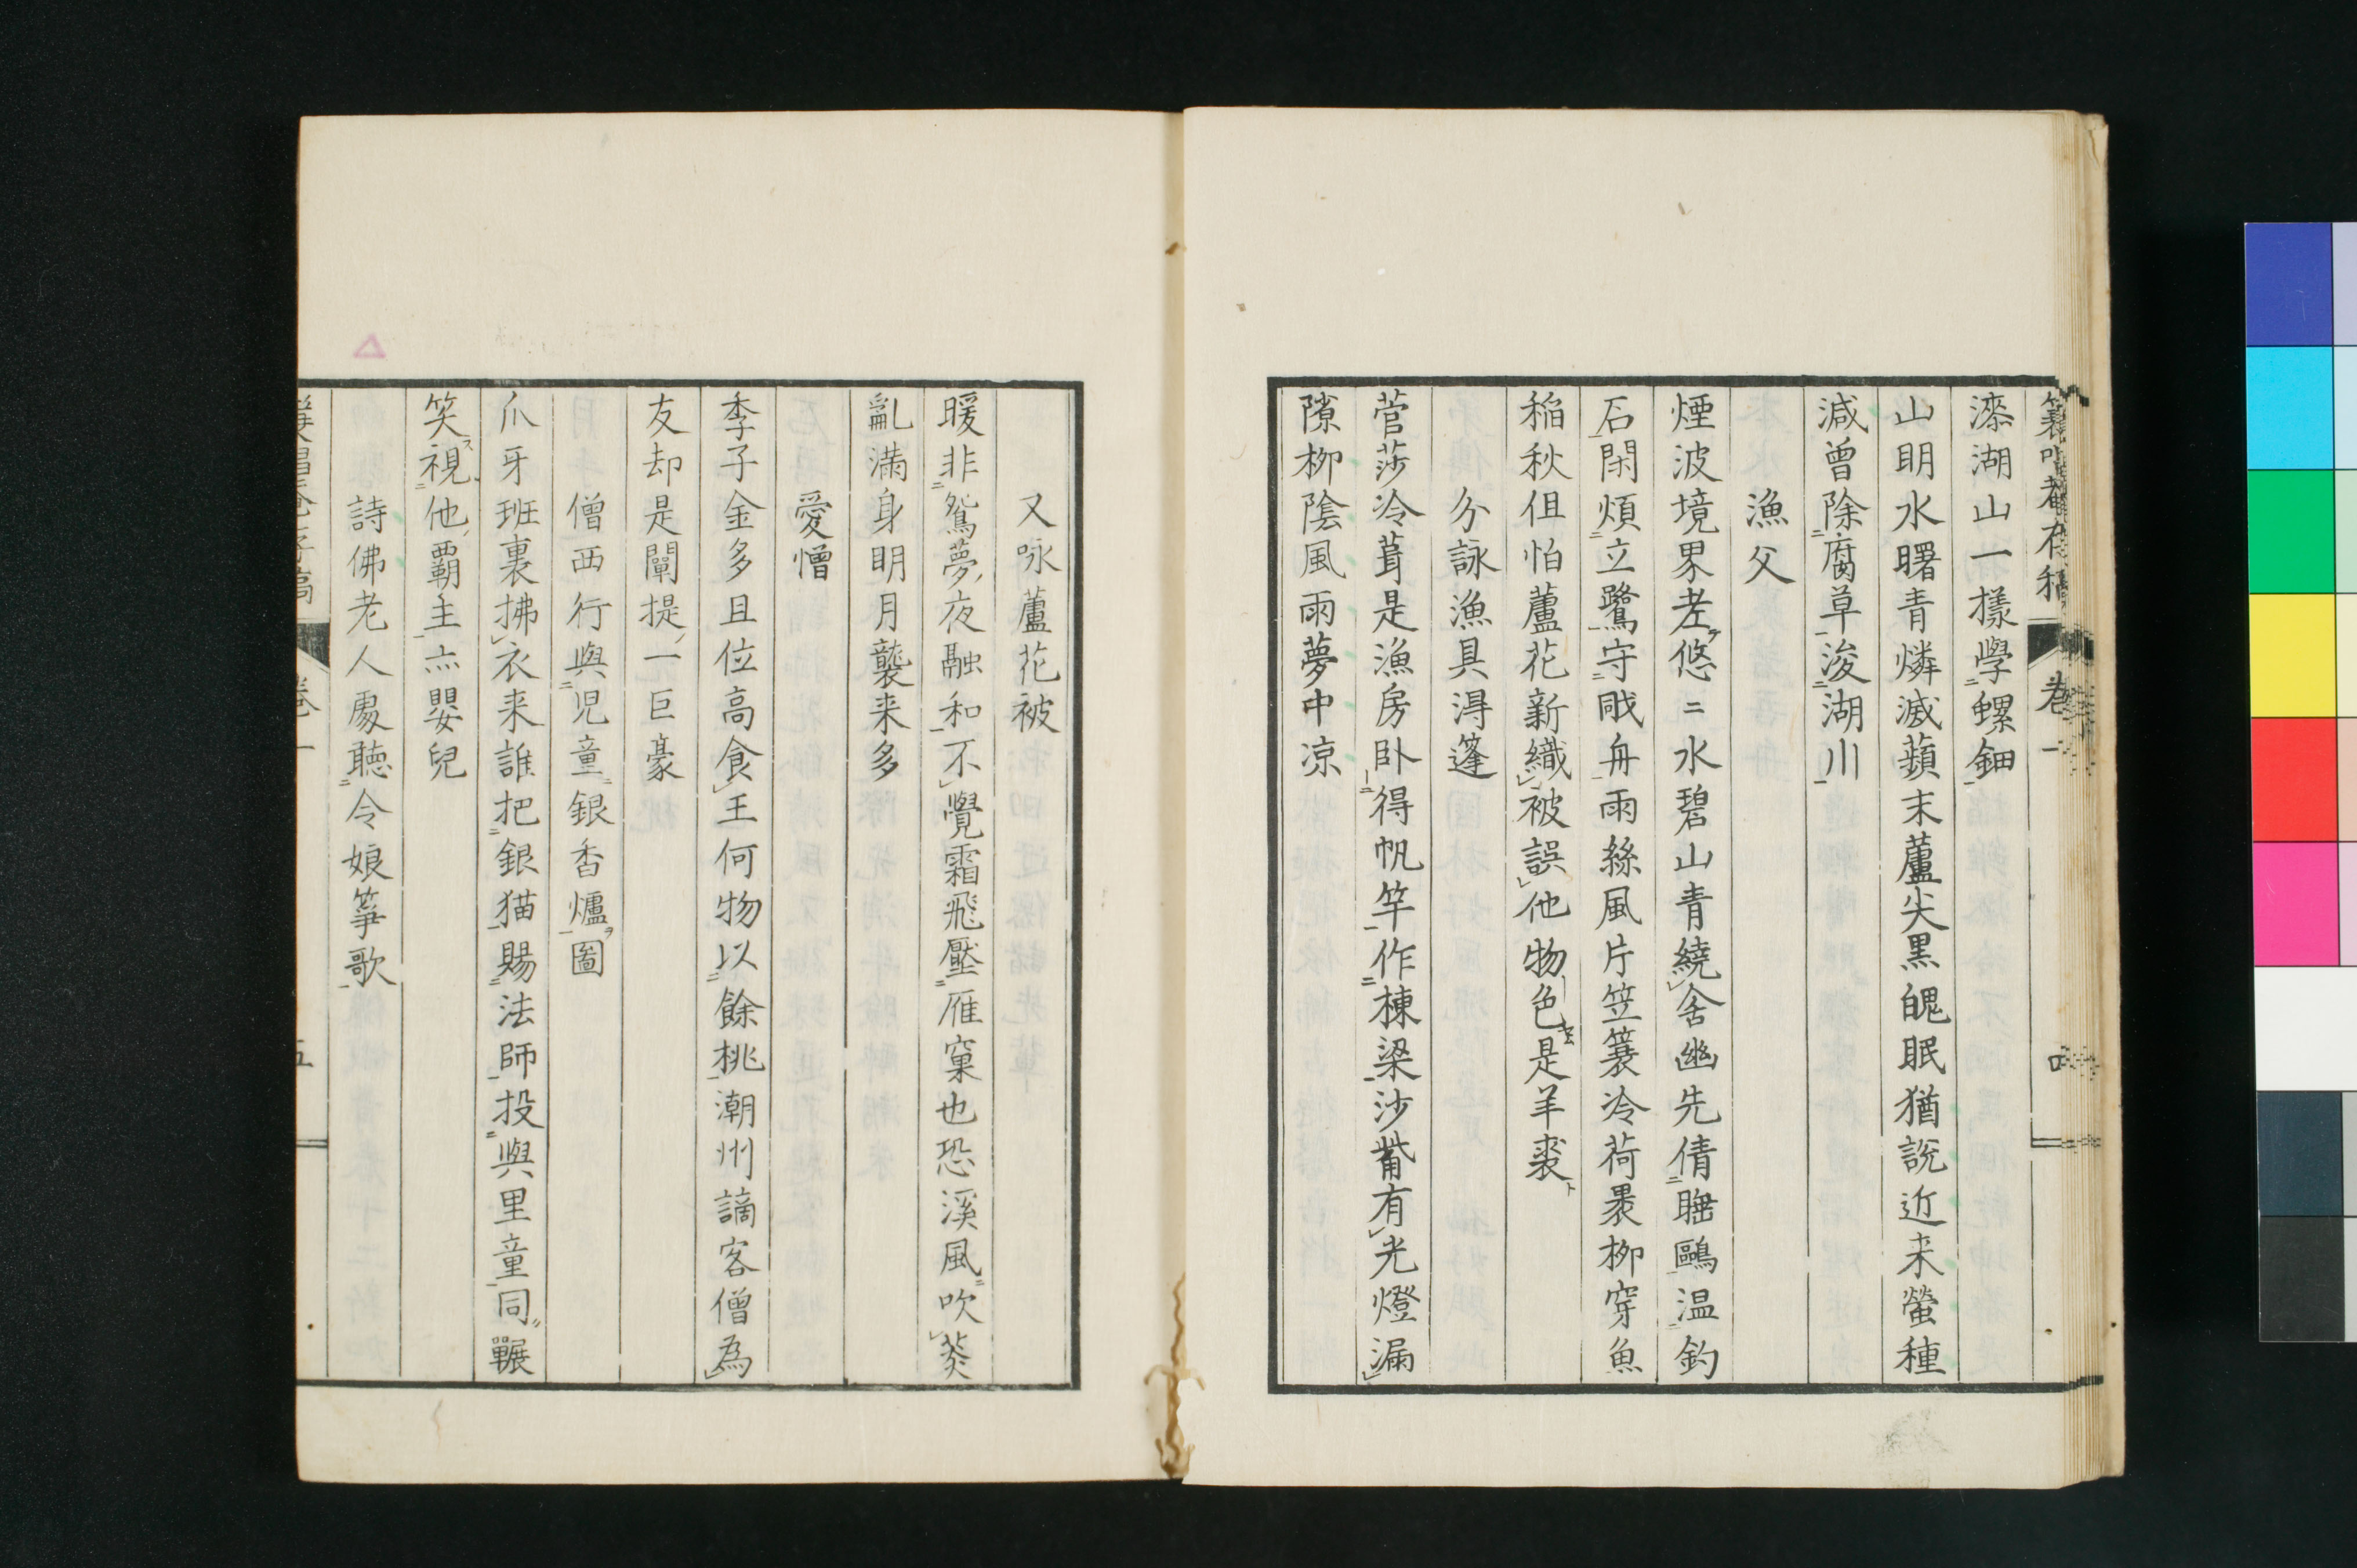 漆湖山一樣學螺鈿
山明水曙青燐滅蘋末蘆尖黒魄眠猶說近来螢種
減曽除腐草浚湖川
漁父
煙波境界老悠〻水碧山青繞舍幽先倩聴鷗温釣
石閑煩立鷺守戙舟雨絲風片笠簑冷荷裹柳穿魚
稲秋但怕蘆花新織被誤他物色是羊裘
分詠漁具得篷
菅莎冷葺是漁房卧得帆竿作棟梁沙觜有光燈漏
隙柳陰風雨夢中凉
卷一
四
又咏蘆花被
暖非鴛夢夜融和不覺霜飛壓雁窠也恐溪風吹葼
亂滿身明月襲来多
愛憎
季子金多且位高食王何物以餘桃潮州謫客僧為
友却是闡提一巨豪
僧西行與児童銀香爐圖
爪牙班裏拂衣来誰把銀猫賜法師投與里童同䩵
笑視他覇主亦嬰兒
詩佛老人處聴令娘箏歌
卷一
五